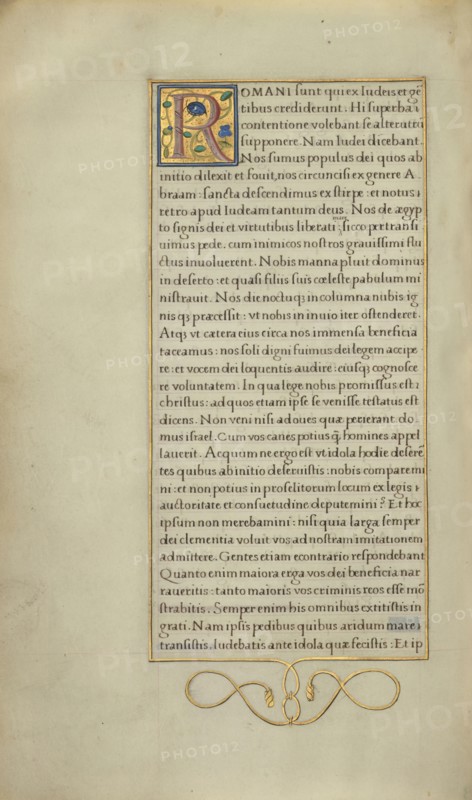 ROMANI sunt qui ex Iudeis et gē
tibus crediderunt. Hi superba ⁊
contentione volebant se alterutrū
supponere. Nam Iudei dicebant.
Nos sumus populus dei quos ab
initio dilexit et fouit, nos circuncisi ex genere A
braam: sancta descendimus ex stirpe: et notus ⁊
retro apud Iudeam tantum deus. Nos de ægyp
to signis dei et virtutibus liberati: sicco pertransi
uimus pede. cum inimicos nostros grauissimi flu
ctus inuoluerent. Nobis manna pluit dominus
in deserto: et quasi filiis suis cœleste pabulum mi
nistrauit. Nos die noctuq; in columna nubis ig
nis q; præcessit: vt nobis in inuio iter ostenderet.
Atq; vt cætera eius circa nos immensa beneficia
taceamus: nos soli digni fuimus dei legem accipe
re: et vocem dei loquentis audire: eiusq; cognosce
re voluntatem. In qua lege nobis promissus est ⁊
christus: ad quos etiam ipse se venisse testatus est
dicens. Non veni nisi ad oues quæ perierant do
mus israel. Cum vos canes potius q̃ homines appel
lauerit. Aequum ne ergo est vt idola hodie deserē
tes quibus ab initio deseruistis: nobis comparemi
ni: et non potius in proselitorum locum ex legis ⁊
auctoritate et consuetudine deputemini? Et hoc
ipsum non merebamini: nisi quia larga semper
dei clementia voluit vos ad nostram imitationem
admittere. Gentes etiam econtrario respondebant
Quanto enim maiora erga vos dei beneficia nar
raueritis: tanto maioris vos criminis reos esse mō
strabitis. Semper enim his omnibus extitistis in
grati. Nam ipsis pedibus quibus aridum mare ⁊
transistis. ludebatis ante idola quæ fecistis: Et ip
PHOTO12